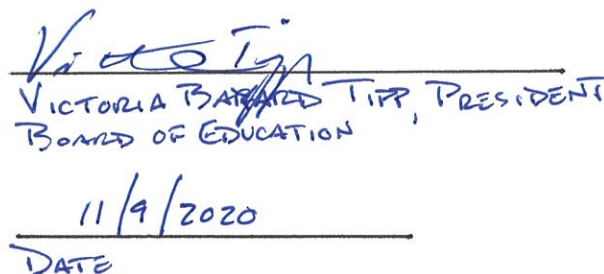 VICTORIA BARNARD TIPP, PRESIDENT
BOARD OF EDUCATION
11/9/2020
DATE